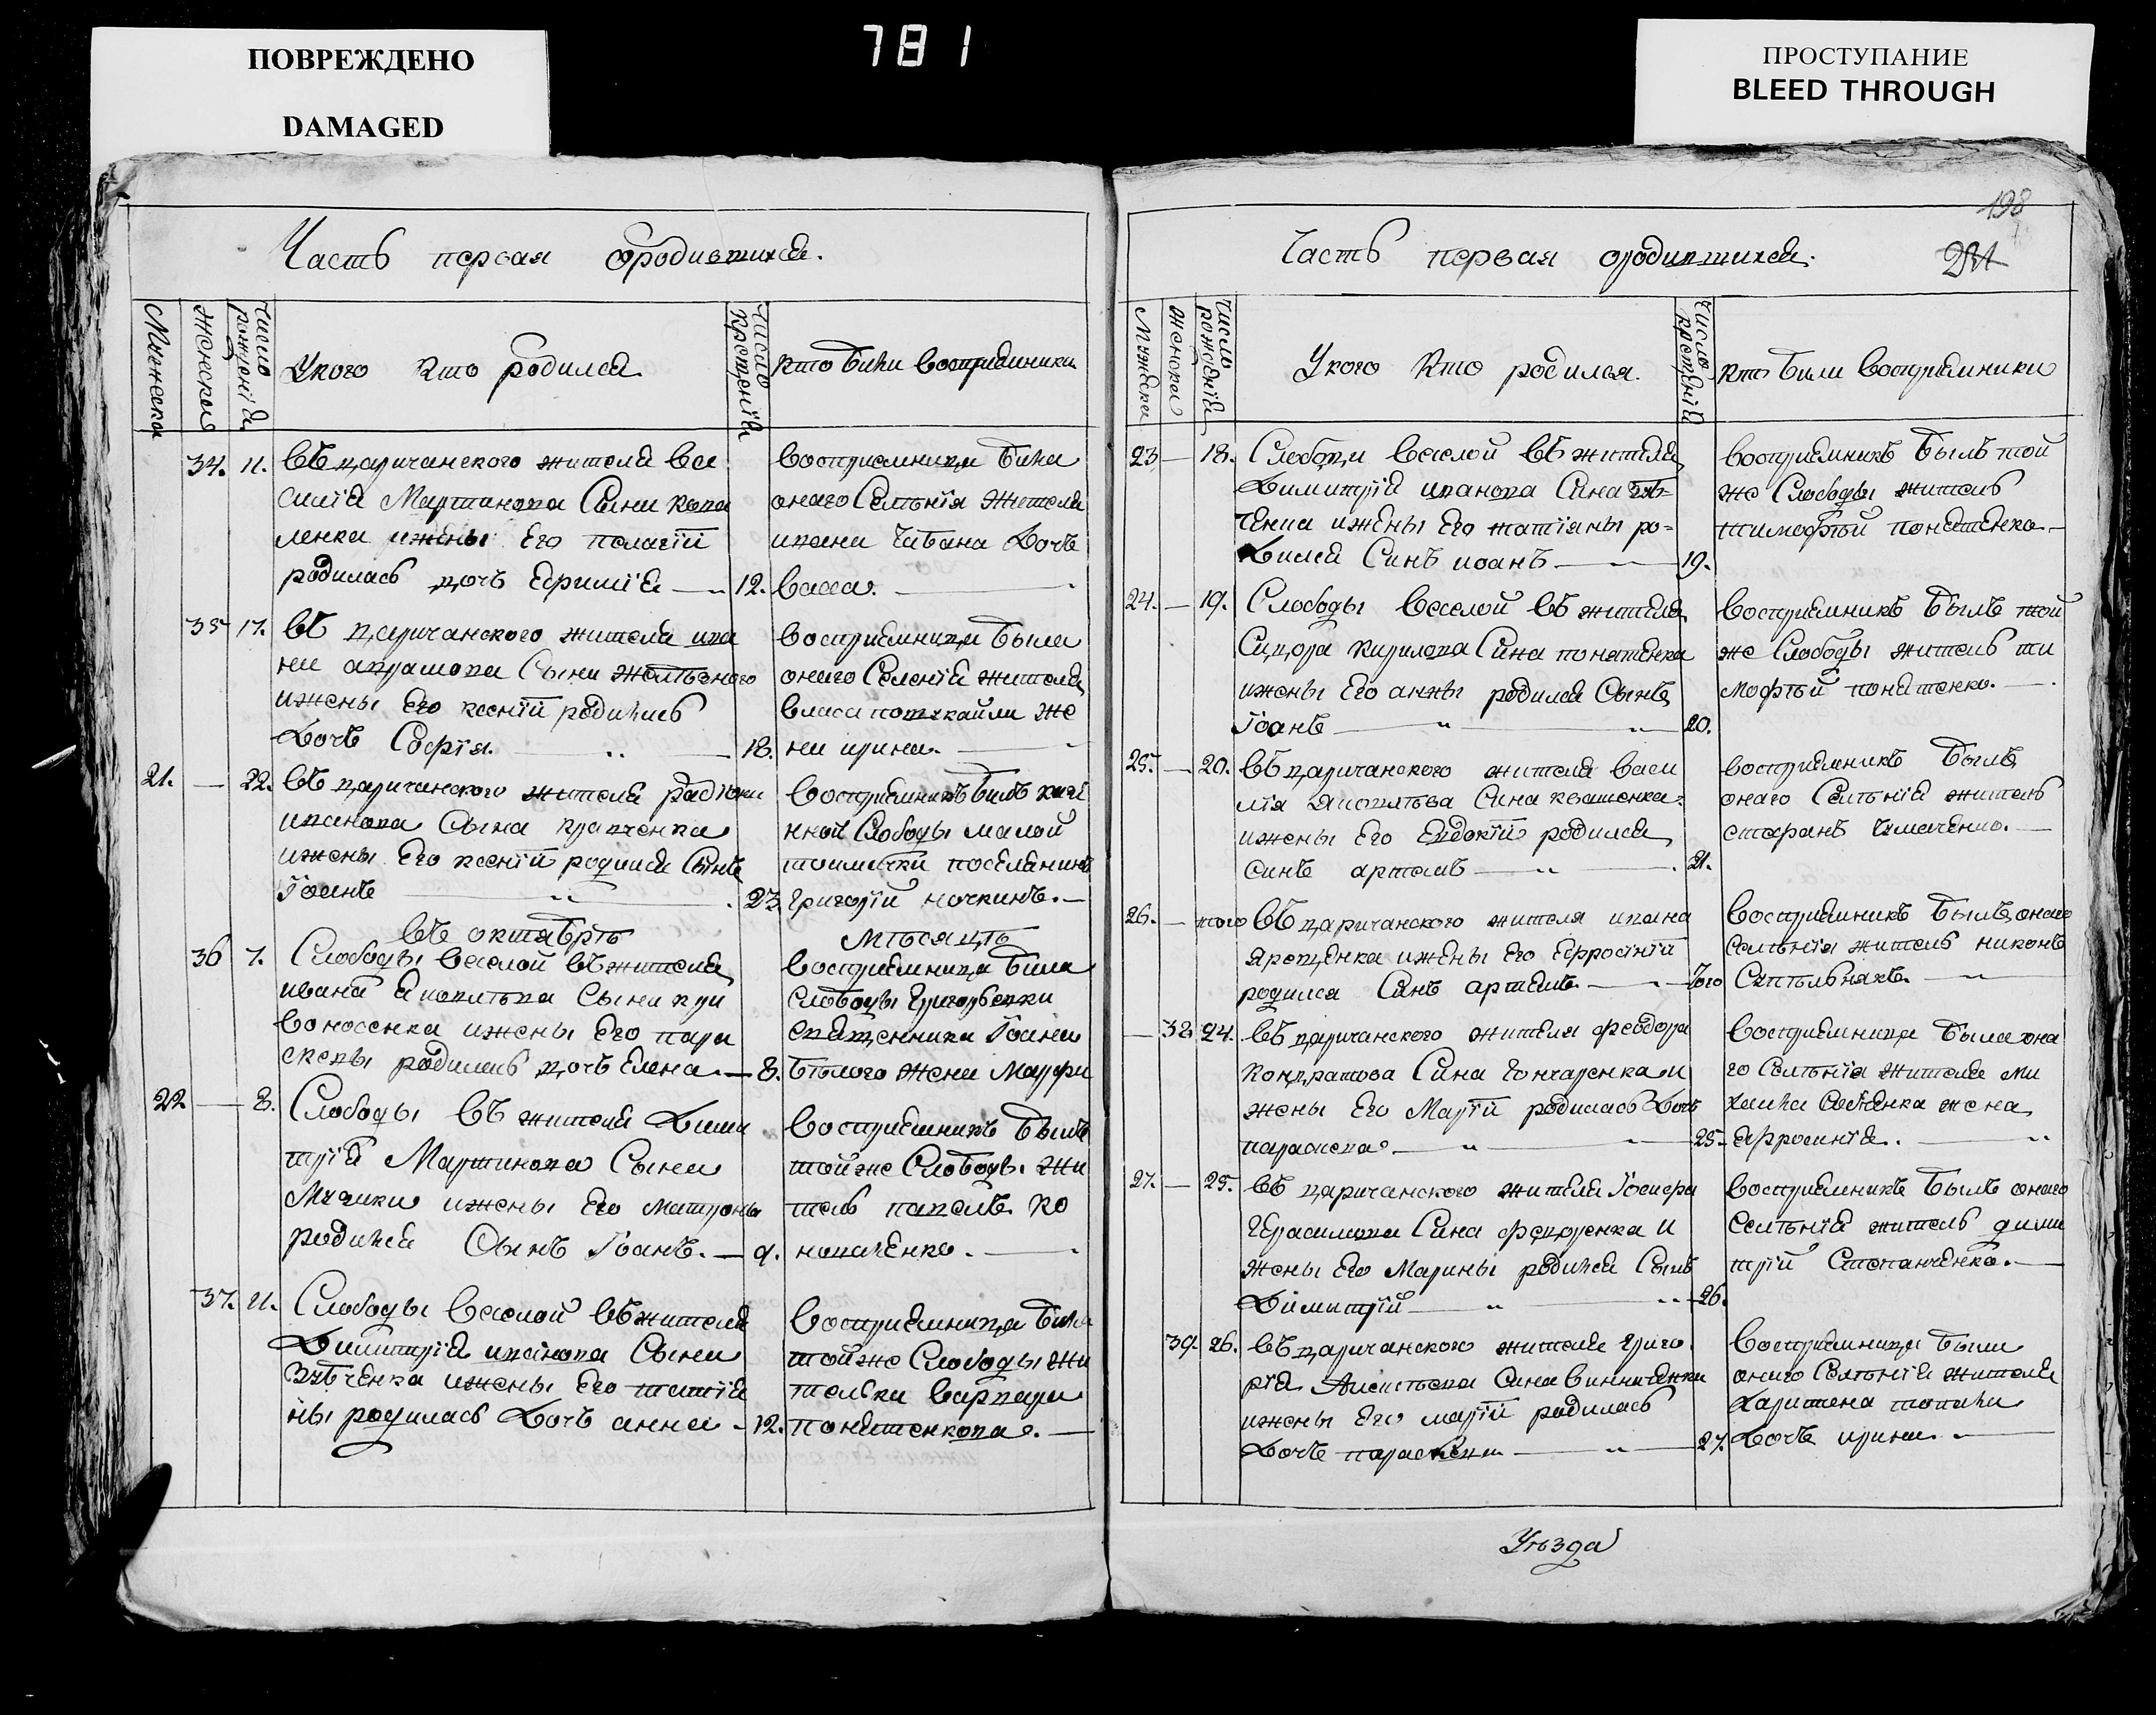 ПОВРЕЖДЕНО
DAMAGED
781
ПРОСТУПАНИЕ
BLEED THROUGH
Часть первая ородившихся.
Мужеска
женска
Число рождения
Укого Кто родился
Число крещения
Кто были восприемники
34. 11. въ царичанского жителя Ва
силія Мартинова Сына кова
ленка ижены Его пелагіи
родилась дочь Ефимія 12.
восприемница была
онаго Селенія жителя
ивана Чабана Дочь
васса.
35 17. въ царичанского жителя ива
на авраамова Сына
ижены Его ксеніи родилась
Дочь Софія. 18.
восприемница была
онаго Селенія жителя
власа же
на ирина.
21. — 22. въ царичанского жителя
иванова Сына кравченка
ижены Его ксеніи родился Сынъ
Іоанъ 23.
восприемникъ былъ
Слободы малой
поселянинъ
григорій ночкинъ.
въ октябрѣ мѣсяцѣ
36 7. Слободы веселой въ жителя
ивана Сына кри
воносенка ижены Его пара
скевы родилась дочь Елена. — 8.
восприемница была
слободы григорьевки
священника Іоанна
бѣлого жена Марфа
22 — 8. Слободы въ жителя Дими
трія Мартинова Сына
ижены Его матроны
родился Сынъ Іоанъ. — 9.
восприемникъ былъ
тойже Слободы жи
тель павелъ ко
новаченко.
37. 11. Слободы веселой въ жителя
Димитрія иванова Сына
ижены Его татія
ны родилась Дочь анна - 12.
восприемница была
тойже Слободы жи
телька варвара
понятенкова.
198
Часть первая ородившихся.
Мужска
женска
Число рождения
Укого Кто родился.
Число крещения
кто были восприемники
23 — 18. Слободы веселой въ жителя
Димитрія иванова Сина
ченка ижены Его татіяны ро=
дился Синъ иоанъ. 19.
восприемникъ былъ той
же Слободы житель
тимофѣй понятенко.
24. — 19. Слободы веселой въ жителя
Сидора кирилова Сина понятенка
ижены Его анны родился Сынъ
Іоанъ 20.
восприемникъ былъ той
же Слободы житель ти
мофѣй понятенко.
25. — 20. въ царичанского жителя васи
лія Сина квашенка
ижены Его Евдокіи родился
синъ артемъ 21.
восприемникъ былъ
онаго Селѣнія житель
стефанъ
26. — того въ царичанского жителя ивана
ярещенка ижены Его Ефросініи
родился Синъ артемъ. — того
восприемникъ былъ онаго
селѣнія житель никонъ
— 38 24. въ царичанского жителя феодора
кондратова Сина Гончаренка и
жены Его Маріи родилась Дочь
параскева 25.
восприемница была она
го Селѣнія жителя ми
хаила жена
ефросинія.
27. — 25. въ царичанского жителя Іосифа
Герасимова Сина федоренка и
жены Его Марины родился Сынъ
Димитрій 26.
восприемникъ былъ онаго
Селѣнія житель дими
трій Степанченко.
39. 26. въ царичанского жителя григо
рія Сина винниченка
ижены Его маріи родилась
Дочь параскева 27.
восприемница была
онаго Селѣнія жителя
Харитона
Дочь ирина.
Уѣзда